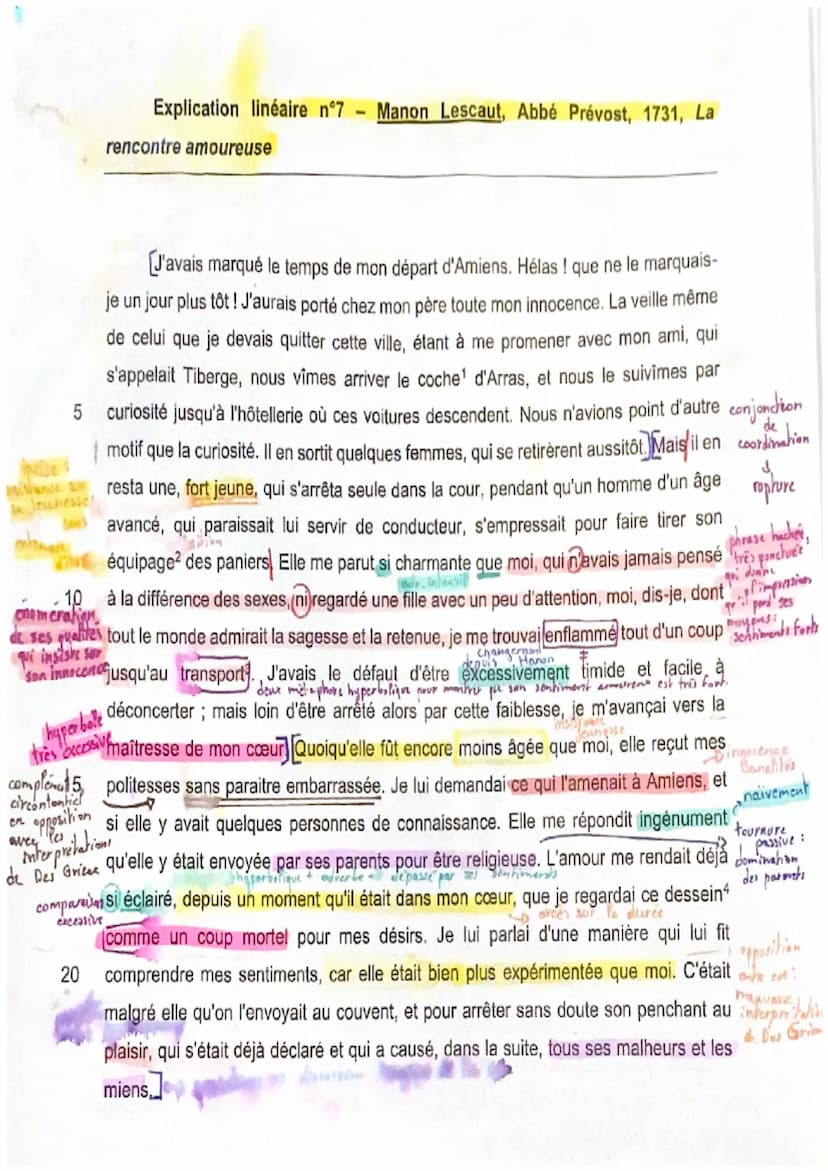 Explication linéaire n°7 – Manon Lescaut, Abbé Prévost, 1731, La
rencontre amoureuse
[J'avais marqué le temps de mon départ d'Amiens. Hélas ! que ne le marquais-
je un jour plus tôt ! J'aurais porté chez mon père toute mon innocence. La veille même
de celui que je devais quitter cette ville, étant à me promener avec mon ami, qui
s'appelait Tiberge, nous vîmes arriver le coche¹ d'Arras, et nous le suivîmes par
5 curiosité jusqu'à l'hôtellerie où ces voitures descendent. Nous n'avions point d'autre
motif que la curiosité. Il en sortit quelques femmes, qui se retirèrent aussitôt.] [Mais il en
resta une, fort jeune, qui s'arrêta seule dans la cour, pendant qu'un homme d'un âge
avancé, qui paraissait lui servir de conducteur, s'empressait pour faire tirer son
équipage² des paniers. Elle me parut si charmante que moi, qui n'avais jamais pensé
10 à la différence des sexes, ni regardé une fille avec un peu d'attention, moi, dis-je, dont
tout le monde admirait la sagesse et la retenue, je me trouvai enflammé tout d'un coup
jusqu'au transport³. J'avais le défaut d'être excessivement timide et facile à
déconcerter ; mais loin d'être arrêté alors par cette faiblesse, je m'avançai vers la
maîtresse de mon cœur.] [Quoiqu'elle fût encore moins âgée que moi, elle reçut mes
15 politesses sans paraitre embarrassée. Je lui demandai ce qui l'amenait à Amiens, et
si elle y avait quelques personnes de connaissance. Elle me répondit ingénument
qu'elle y était envoyée par ses parents pour être religieuse. L'amour me rendait déjà
si éclairé, depuis un moment qu'il était dans mon cœur, que je regardai ce dessein⁴
comme un coup mortel pour mes désirs. Je lui parlai d'une manière qui lui fit
20 comprendre mes sentiments, car elle était bien plus expérimentée que moi. C'était
malgré elle qu'on l'envoyait au couvent, et pour arrêter sans doute son penchant au
plaisir, qui s'était déjà déclaré et qui a causé, dans la suite, tous ses malheurs et les
miens.]
conjonction
de
coordination
rupture
phrase hachée,
très ponctuée
qui donne
l'impression
qu'il perd ses
moyens :
sentiments forts
adv. intensif
énumération
de ses qualités
qui insiste sur
son innocence
changement
depuis Manon
deux métaphore hyperbolique pour montrer que son sentiment amoureux est très fort.
hyperbole
très excessive
insistance
jeunesse
innocence
banalités
complément
circonstanciel
en opposition
avec les
interprétations
de Des Grieux
naïvement
tournure
passive :
domination
des parents
hyperbolique + adverbe → dépassé par ses sentiments
comparaison
excessive
accés sur la durée
opposition
entre eux :
mauvaise
interprétation
de Des Grieux